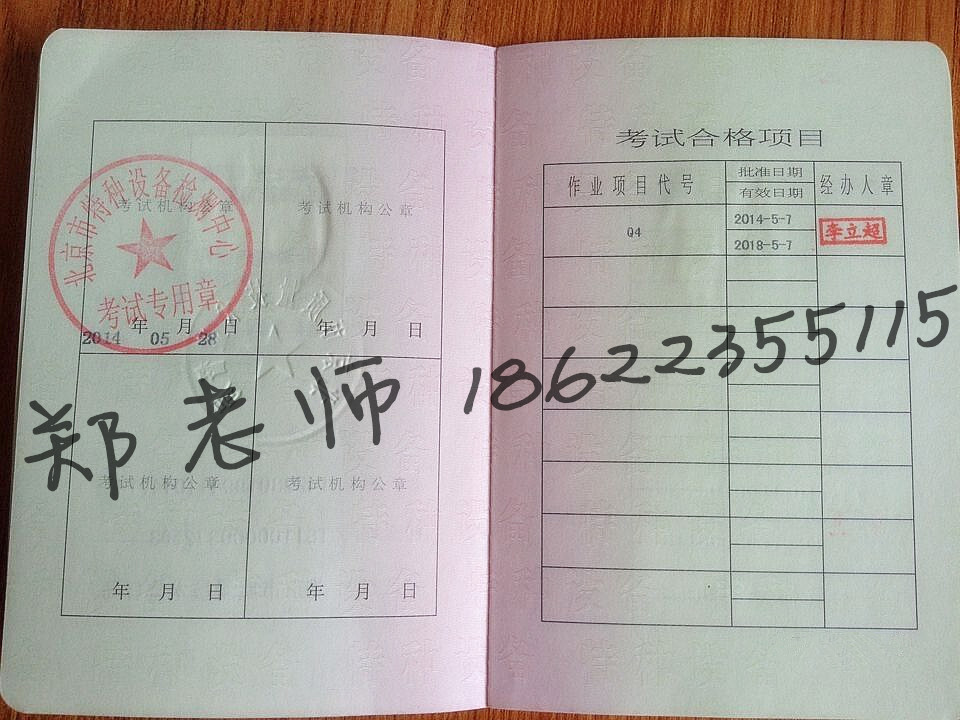 北京市特种设备检测中心
考试专用章
考试机构公章
考试机构公章
年 月 日
2014 05 28
年 月 日
考试机构公章
考试机构公章
年 月 日
年 月 日
考试合格项目
作业项目代号
批准日期
有效日期
经办人章
Q4
2014-5-7
2018-5-7
李立超
郑老师 18622355115